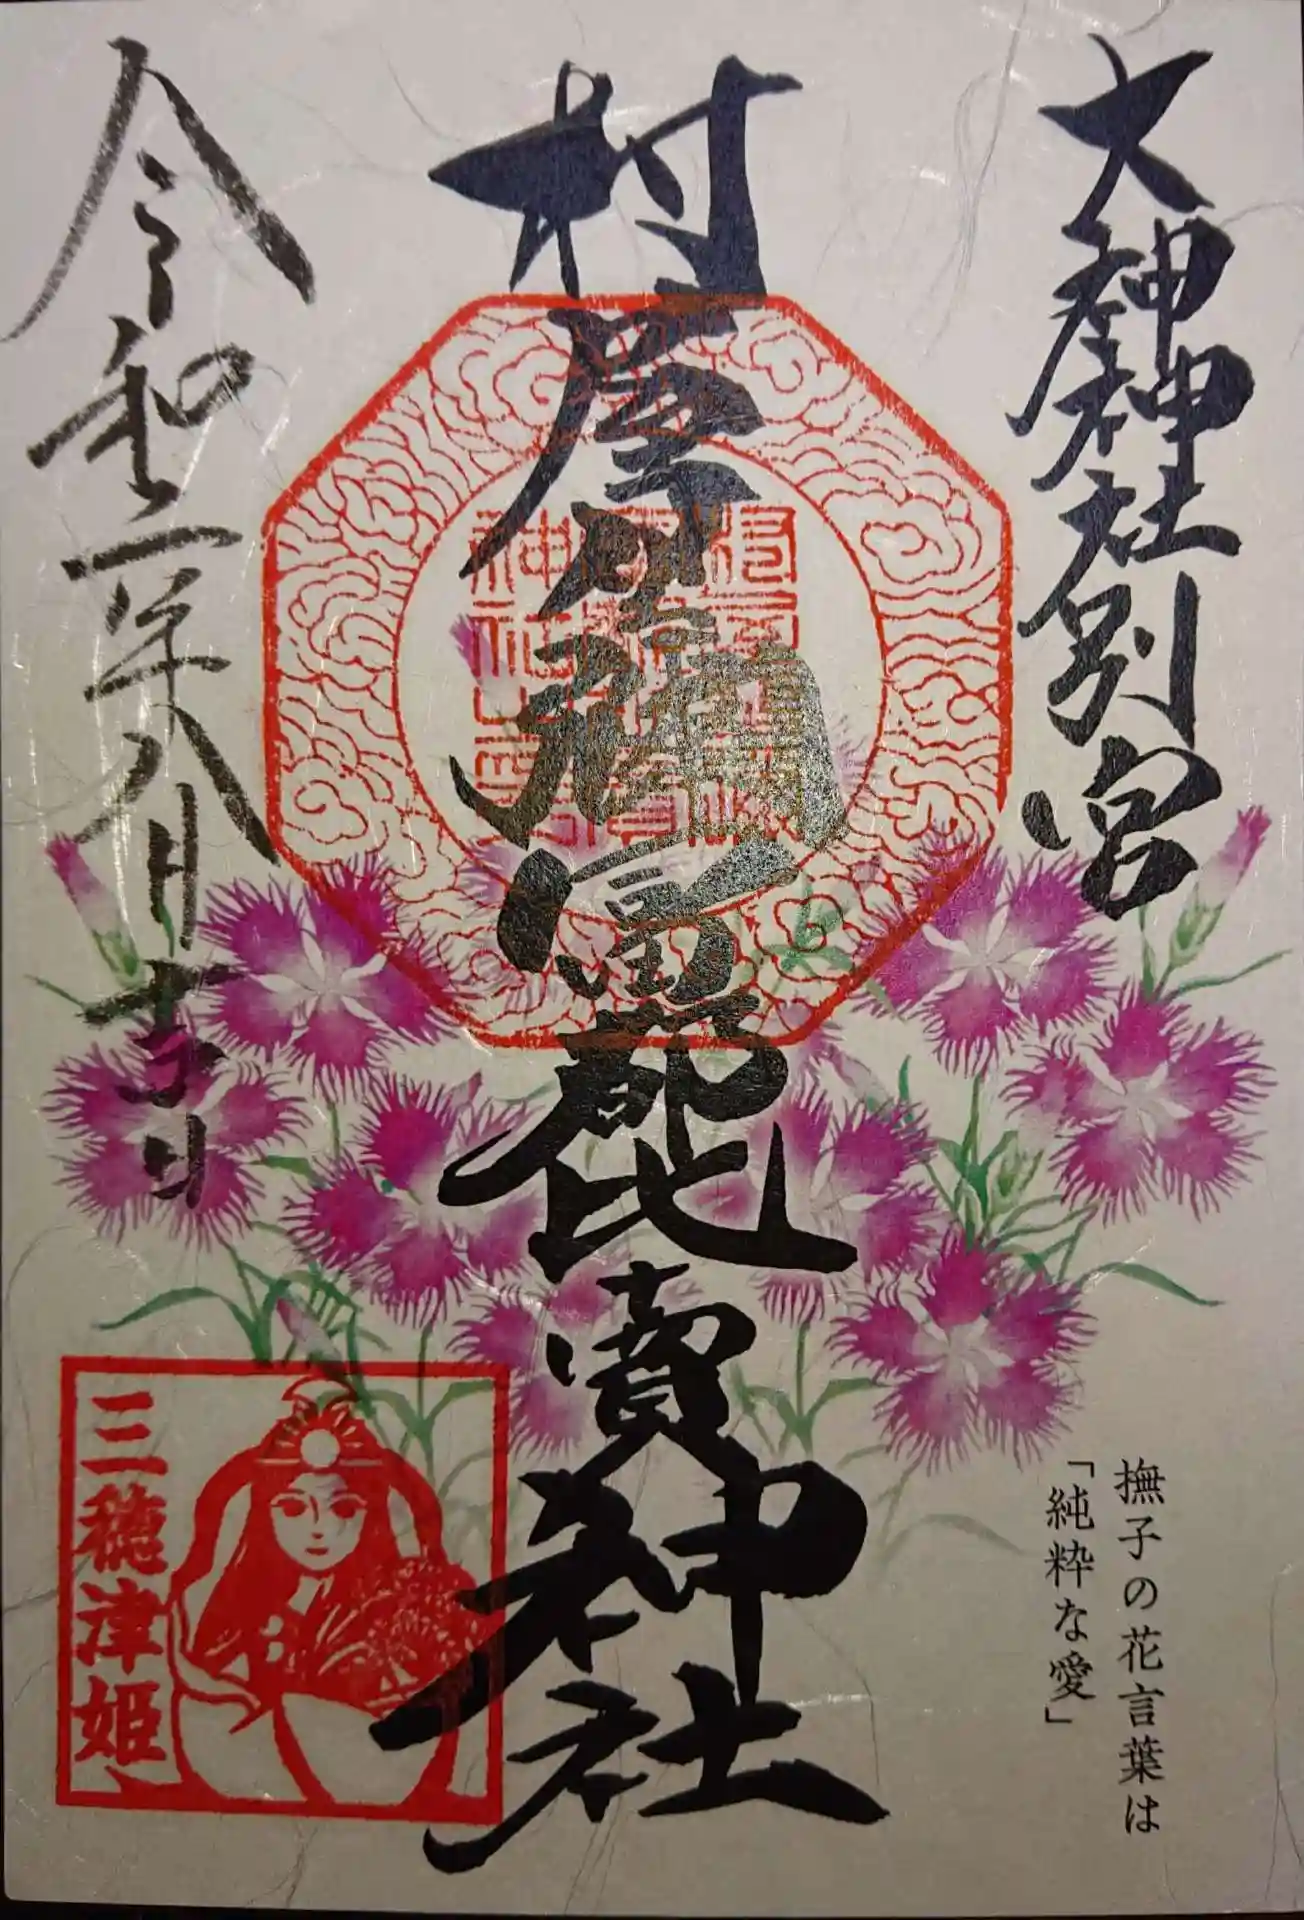 大神神社別宮
村屋坐彌冨都比賣神社
令和二年八月十三日
三穂津姫
撫子の花言葉は
「純粋な愛」